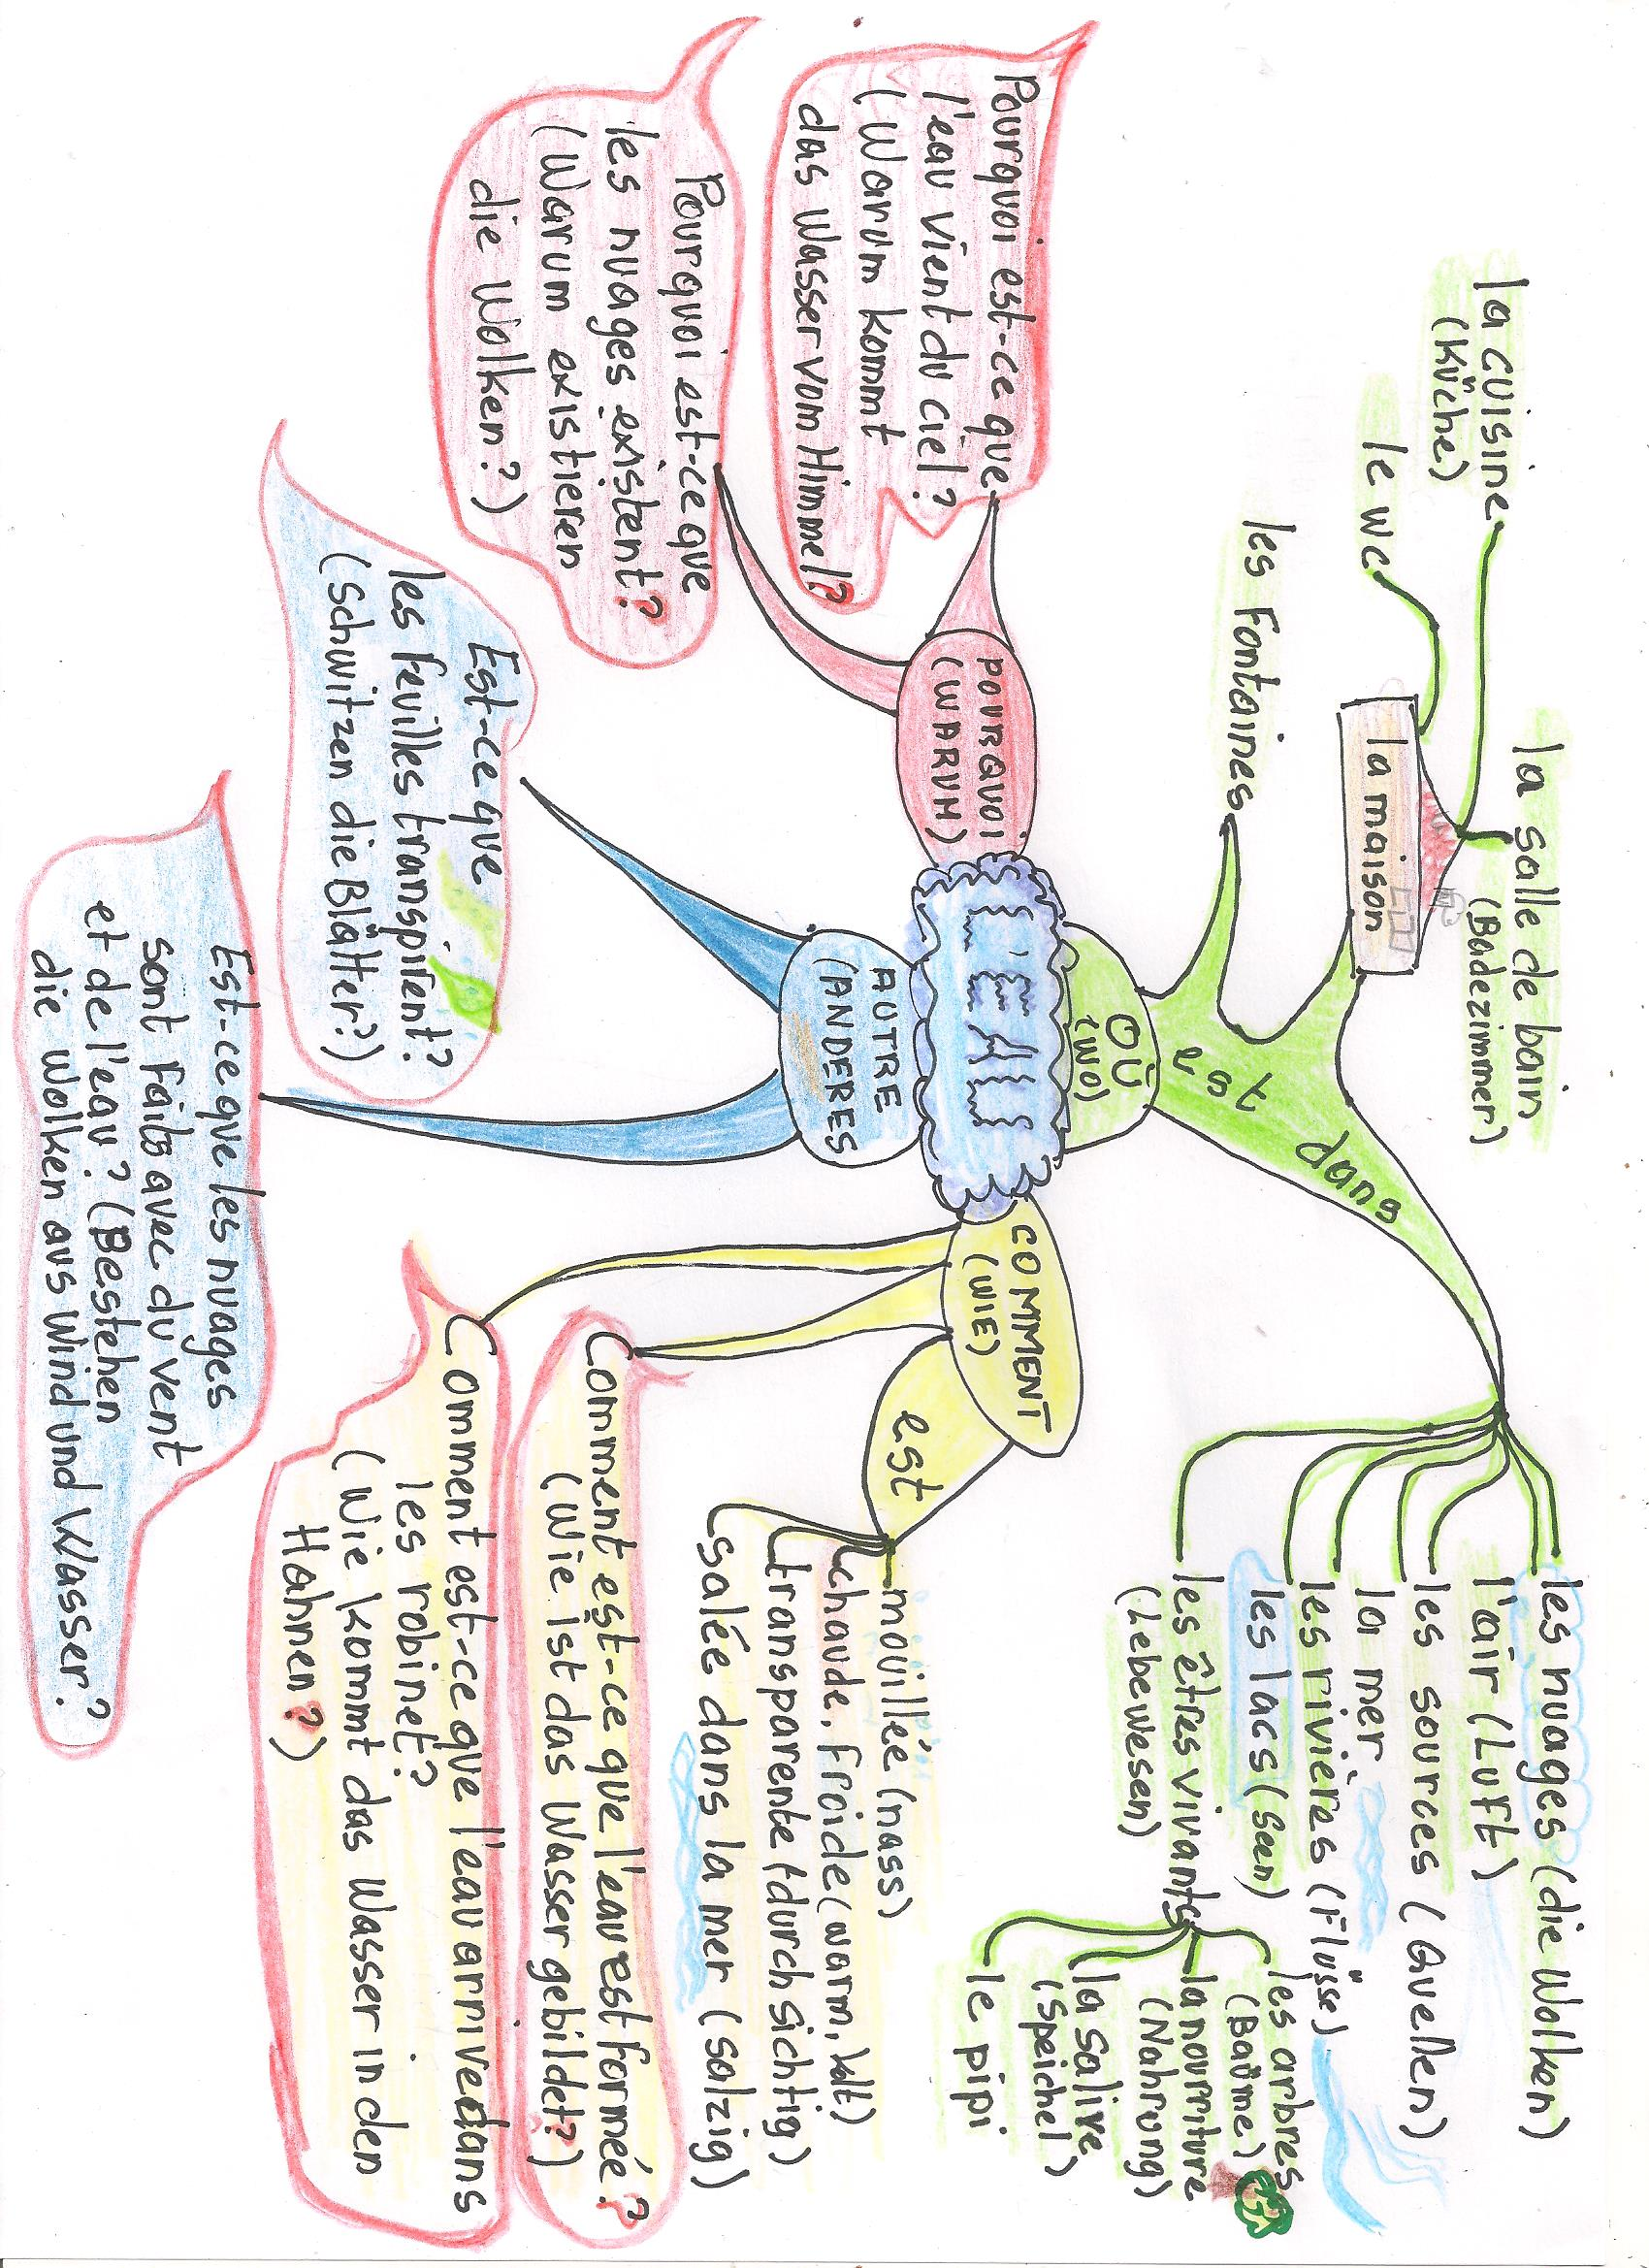 L'EAU
OÙ
(WO)
est
dans
la maison
la cuisine
(Küche)
le wc
la salle de bain
(Badezimmer)
les fontaines
les nuages (die Wolken)
l'air (Luft)
les sources (Quellen)
la mer
les rivières (Flüsse)
les lacs (Seen)
les êtres vivants
(Lebewesen)
les arbres
(Baüme)
la nourriture
(Nahrung)
la salive
(Speichel)
le pipi
COMMENT
(WIE)
est
mouillée (nass)
chaude, froide (warm, kalt)
transparente (durchsichtig)
salée dans la mer (salzig)
Comment est-ce que l'eau est formée?
(Wie ist das Wasser gebildet?)
Comment est-ce que l'eau arrive dans
les robinet?
(Wie kommt das Wasser in den
Hahnen?)
AUTRE
(ANDERES
Est-ce que
les feuilles transpirent?
(Schwitzen die Blätter?)
Est-ce que les nuages
sont faits avec du vent
et de l'eau? (Bestehen
die Wolken aus Wind und Wasser?
POURQUOI
(WARUM)
Pourquoi est-ce que
l'eau vient du ciel?
(Warum kommt
das Wasser vom Himmel?
Pourquoi est-ce que
les nuages existent?
(Warum existieren
die Wolken?)